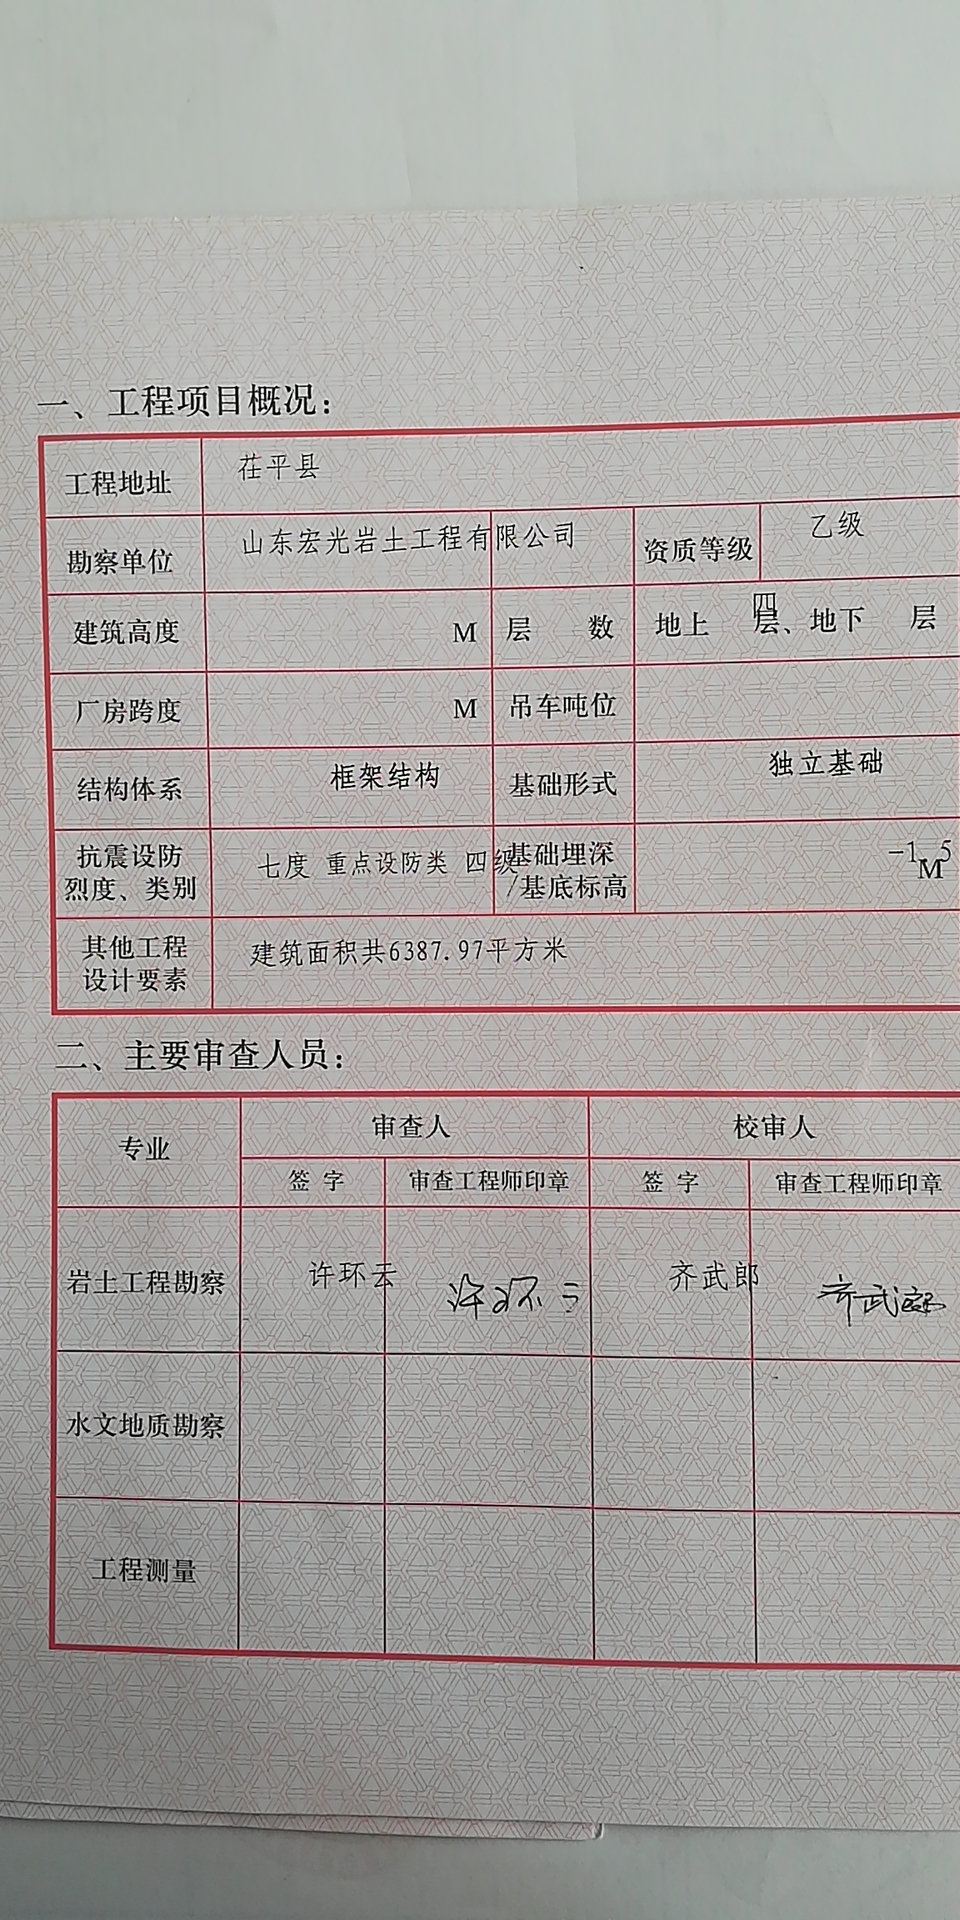 一、工程项目概况：
工程地址 茌平县
勘察单位 山东宏光岩土工程有限公司 资质等级 乙级
建筑高度 M 层 数 地上 四层、地下 层
厂房跨度 M 吊车吨位
结构体系 框架结构 基础形式 独立基础
抗震设防
烈度、类别 七度 重点设防类 四级 基础埋深
/基底标高 -1.5 M
其他工程
设计要素 建筑面积共6387.97平方米
二、主要审查人员：
专业 审查人 校审人
签 字 审查工程师印章 签 字 审查工程师印章
岩土工程勘察 许环云 许环云 齐武郎 齐武郎
水文地质勘察
工程测量